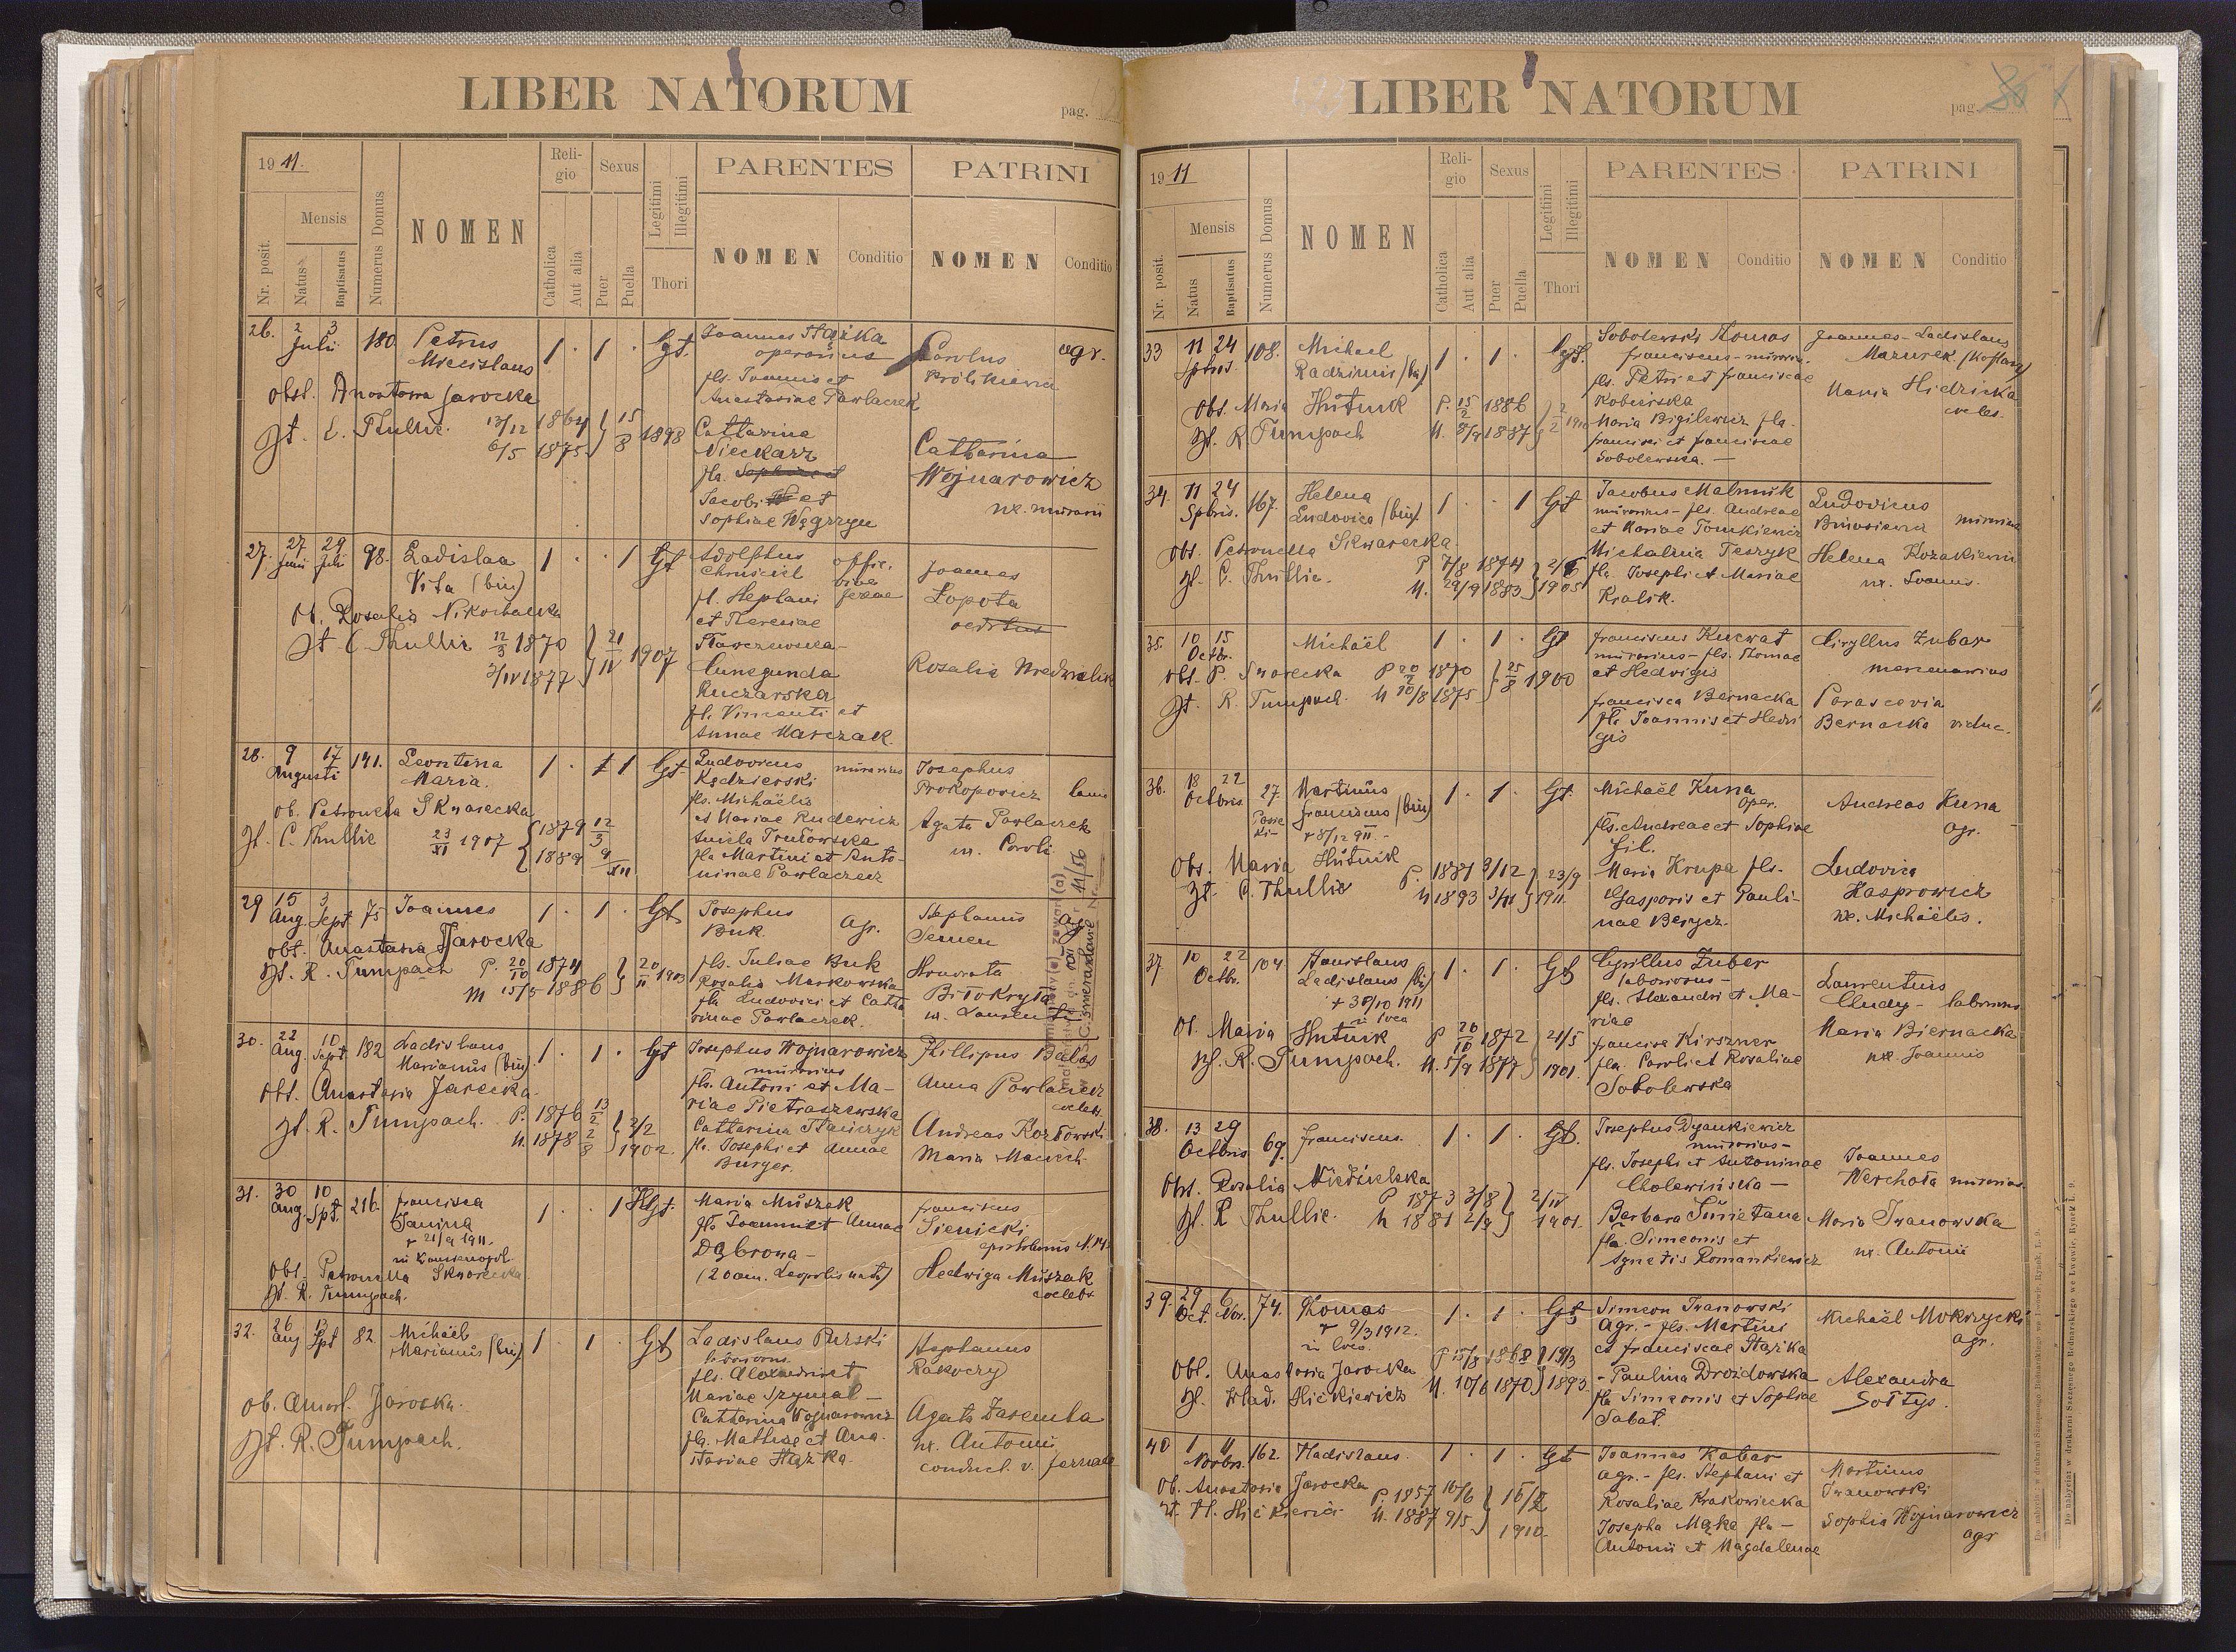 LIBER NATORUM
pag.
19 11.
Nr. posit.
Mensis
Natus
Baptisatus
Numerus Domus
NOMEN
Reli-
gio
Catholica
Aut alia
Sexus
Puer
Puella
Legitimi
Illegitimi
Thori
PARENTES
NOMEN
Conditio
PATRINI
NOMEN
Conditio
26. 2 3 Julii 180. Petrus
Miecislaus
1 . 1 . Lgt.
obst. Anastasia Jarocka
Jt. C. Thullie. 13/12 1864 } 15
6/5 1875 } 8 1898
Joannes Stążka
operarius
fls. Joannis et
Anastasiae Pawlaczek
Catharina
Nieckarz
fla.
Jacobi et
Sophiae Węgrzyn
Carolus
Królikiewicz
agr.
Catharina
Wojnarowicz
ux. murarii
27. 27 Juni 29 Juli 98. Ladislaa
Vita (bin)
1 . . 1 Lgt
Ob. Rosalia
Jt C Thullie 12/3 1870 } 21
3/IV 1877 } IV 1907
Adolphus
Chruściel
fl. Stephani
et Theresiae
Cunegunda
Kuczarska
fl. Vincenti et
Annae Karczak.
Joannes
Łopota
Rosalia
28. 9 17 Augusti 141. Leontina
Maria.
1 . 1 Lgt
ob. Petronela Skwarecka
Jt. C. Thullie 23/XI 1907 { 1879 12/3
1889 9/XII
Ludovicus
Kędzierski
murarius
fls. Michaëlis
et Mariae Rudewicz
Aniela
fla Martini et Anto-
ninae Pawlaczek
Josephus
Prokopowicz
Agata Pawlaczek
ux. Caroli
29 15 Aug. 3 Sept 75 Joannes
1 . 1 . Lgt
obst. Anastasia Jarocka
Jt. R. Tumpach P. 20/10 1874 } 20
M 15/5 1886 } II 1903
Josephus
Buk. Agr.
fls. Juliae Buk
Rosalia Markowska
fla Ludovici et Catha
rinae Pawlaczek.
Stephanus
Semen
Honorata
Białokryta
ux. Laurentii
30. 22 Aug. 10 Sept. 182 Ladislaus
Marianus (bin)
1 . 1 . Lgt
obst. Anastasia Jarocka
Jt. R. Tumpach. P. 1876 13/2 } 2/2
M. 1878 2/8 } 1902.
Josephus Wojnarowicz
murarius
fls. Antoni et Ma-
riae Pietraszewska
Catharina Stańczyk
fla. Josephi et Annae
Burger.
Phillipus Bałos
Anna Pawlaczek
coelebs.
Andreas Kozłowski
Maria
31. 30 Aug. 10 Spt. 216. Francisca
Janina
+ 21/9 1911.
1 . . 1 Illgt.
Obst. Petronella Skwarecka
Jt. R. Tumpach.
Maria Muszak
fla Joannis et Annae
Dąbrowa -
Franciscus
Sienicki
Hedwiga Muszak
coelebs
32. 26 Aug 13 Spt 82. Michaël
Marianus (bin)
1 . 1 . Lgt
ob. Anast. Jarocka.
Jt. R. Tumpach.
Ladislaus Purski
labororus
fls. Alexandri et
Mariae Szymal -
Catharina Wojnarowicz
fla. Mathiae et Ana-
stasiae Stążka.
Stephanus
Rakoczy
Agata Zaremba
ux. Antonii
conduct. v. ferreae
LIBER NATORUM
pag. 86
19 11
Nr. posit.
Mensis
Natus
Baptisatus
Numerus Domus
NOMEN
Reli-
gio
Catholica
Aut alia
Sexus
Puer
Puella
Legitimi
Illegitimi
Thori
PARENTES
NOMEN
Conditio
PATRINI
NOMEN
Conditio
33 11 24 Sptbris 108. Michael
Radzimir (bin)
1 . 1 . Lgt.
Obs. Maria Hutnik P. 15/2 1886 }
Jt. R. Tumpach M. 8/9 1887 } 2/2 1910
Sobolewski Thomas
Franciscus - murarius.
fls. Petri et Franciscae
Kobierska
Maria Bigilewicz fla.
Francisci et Franciscae
Sobolewska. -
Joannes-Ladislaus
Mazurek.
Maria
coelebs.
34. 11 24 Spbris. 167. Helena
Ludovica (bin)
1 . . 1 Lgt
Obs. Petronella Skwarecka.
Jt. C. Thullie. P 7/8 1874 } 2/5
M. 29/9 1883 } 1905
Jacobus Malinnik
murarius - fls. Andreae
et Mariae Tomkiewicz
Michalina Teszyk
fla. Josephi et Mariae
Kralik.
Ludovicus
murarius
Helena Kozakiewicz
ux. Joannis.
35. 10 15 Octbr. Michaël 1 . 1 . Lgt
obst. P. Skwarecka P 20/2 1870 } 25
Jt. R. Tumpach. M 10/8 1875 } 8 1900
Franciscus Kurwat
murarius - fls. Thomae
et Hedvigis
Francisca Bernacka
fla Joannis et Hedvi
gis
Ciryllus Zubar
mercenarius
Parascevia
Bernacka vidua.
36. 18 22 Octbris 27. Martinus
Franciscus (bin)
+ 8/12 911. -
1 . 1 . Lgt.
Obs. Maria Hutnik
Jt. C. Thullie P. 1887 3/12 } 23/9
M 1893 3/III } 1911.
Michaël Kuna
oper.
fls. Andreae et Sophiae
Gil.
Maria Krupa fls.
Gasparis et Pauli-
nae Berycz.
Andreas Kuna
agr.
Ludovica
Kasprowicz
ux. Michaëlis.
37. 10 22 Octbr. 104. Stanislaus
Ladislaus (bi)
+ 30/10 1911
in loco
1 . 1 . Lgt
Ob. Maria Hutnik P 26/10 1872 } 21/5
Jt. R. Tumpach. M. 5/9 1877 } 1901.
Cyrillus Zuber
laboriosus -
fls. Alexandri et Ma-
riae
Francisca Kirszner
fla. Caroli et Rosaliae
Sobolewska
Laurentius
Chudy -
Maria Biernacka
ux. Joannis
38. 13 29 Octbris 69. Franciscus. 1 . 1 . Lgt.
Obst. Rosalia Niedzielska
Jt. R Thullie. P 1873 3/8 } 2/IV
M 1881 2/9 } 1901.
Josephus Dyankiewicz
murarius -
fls. Josephi et Antoninae
Cholewińska -
Barbara Smietana
fla. Simeonis et
Agnetis Romankiewicz
Joannes
Werchota murarius.
Maria Iwanowska
ux. Antonii
39. 29 Oct. 6 Nov. 74. Thomas
+ 9/3 1912.
in loco.
1 . 1 . Lgt
Obst. Anastasia Jarocka P 15/8 1868 } 19/3
Jt. Wład. Hickiewicz M. 10/6 1870 } 1893.
Simeon Iwanowski
agr. - fls. Martini
et Franciscae Stążka
- Paulina Drozdowska
fla Simeonis et Sophiae
Sabat.
Michaël Mokrzycki
agr.
Alexandra
Sołtys.
40 1 4 Novbr. 162. Vladislaus. 1 . 1 . Lgt
Ob. Anastasia Jarocka P. 1857 10/6 } 15/2
M. 1887 9/5 } 1910.
Joannes Kabar
agr. - fls. Stephani et
Rosaliae Krakowiecka
Josepha Mąka fla -
Antonii et Magdalenae
Martinus
Iwanowski
Sophia Wojnarowicz
agr
Do nabycia w drukarni Szczęsnego Bednarskiego we Lwowie, Rynek l. 9.